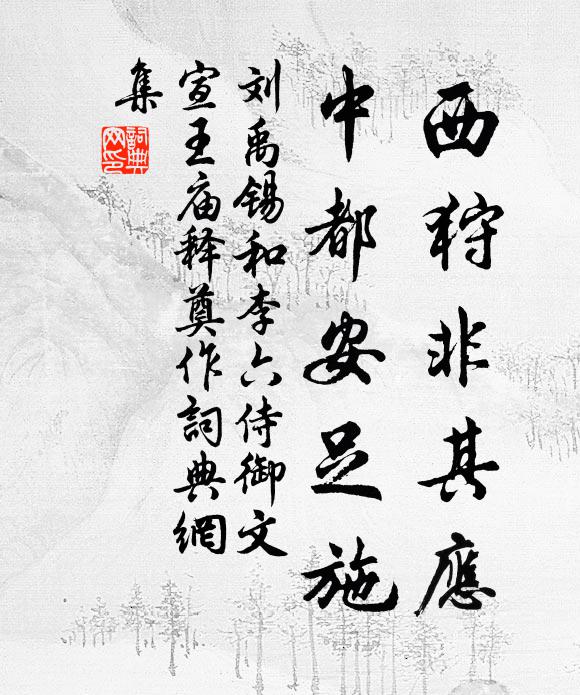 西狩非其應
中都安足施
刘禹锡和李六侍御文
宣王庙释奠作詞典網
集
詞典網印